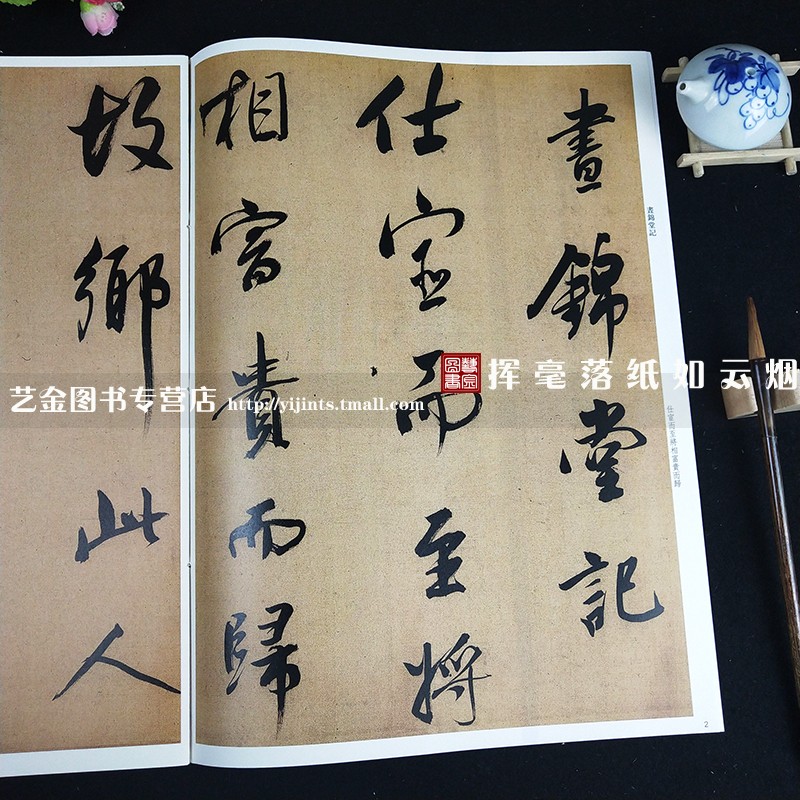 晝錦堂記
仕宦而至將
相富貴而歸
故鄉此人
晝錦堂記
仕宦而至將相富貴而歸
2
藝金圖書
挥毫落纸如云烟
艺金图书专营店 http://yijints.tmall.com